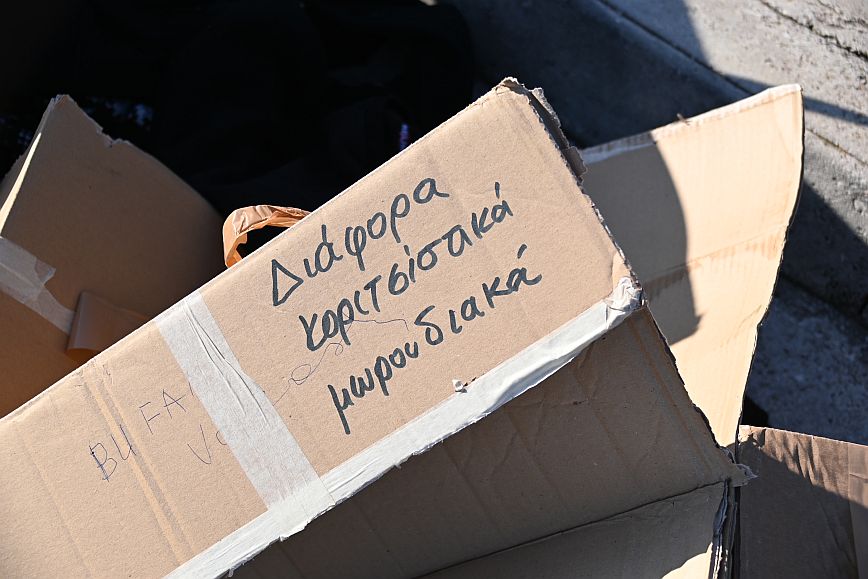 Διάφορα
κοριτσίσακά
μωρουδιακά
BU FA